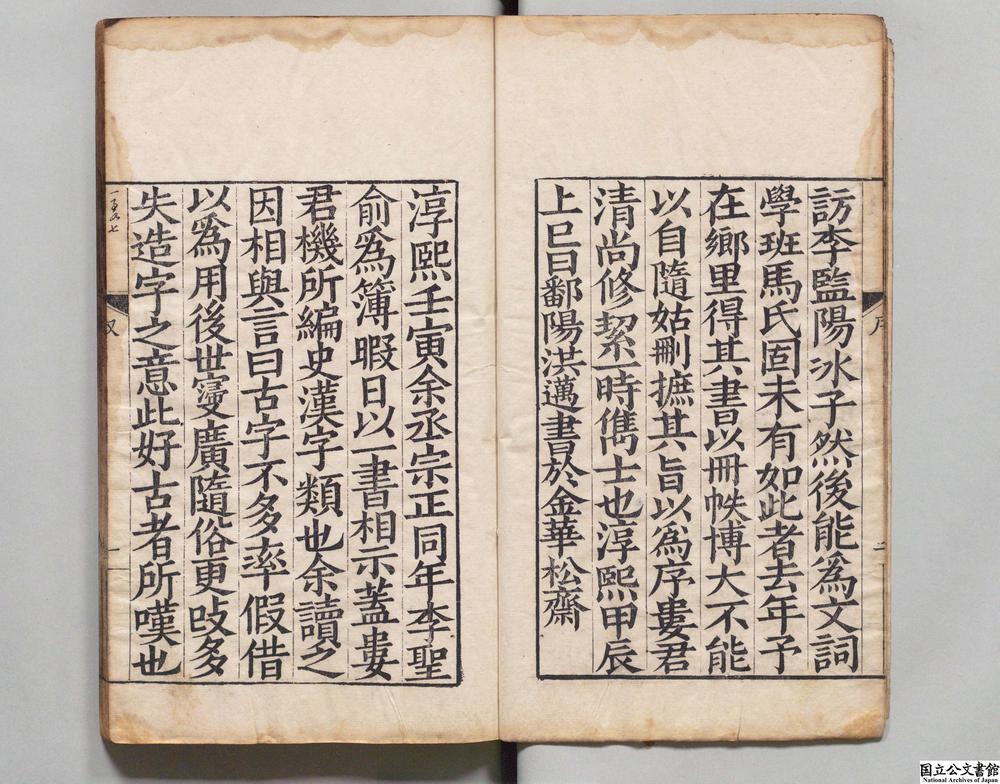 訪李監陽冰子然後能爲文詞
學班馬氏固未有如此者去年予
在鄉里得其書以冊帙博大不能
以自隨姑刪摭其旨以爲序婁君
清尚修絜一時雋士也淳熙甲辰
上巳日鄱陽洪邁書於金華松齋
序
二
淳熙壬寅余丞宗正同年李聖
俞爲簿暇日以一書相示蓋婁
君機所編史漢字類也余讀之
因相與言曰古字不多率假借
以爲用後世寖廣隨俗更改多
失造字之意此好古者所嘆也
一
国立公文書館
National Archives of Japan